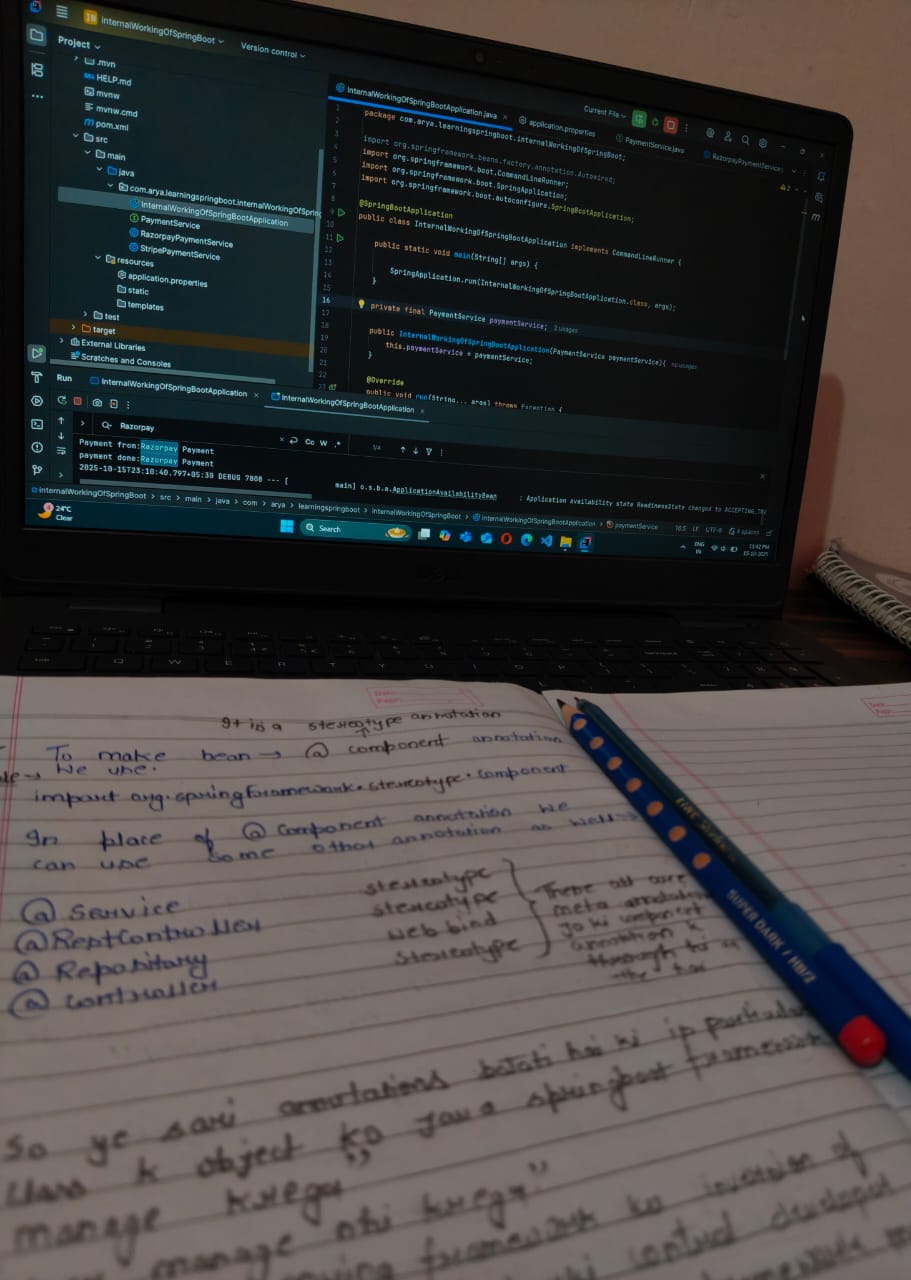 InternalWorkingOfSpringBoot
Version control
Project
.mvn
HELP.md
mvnw
mvnw.cmd
pom.xml
src
main
java
com.arya.learningspringboot.internalWorkingOfSprin
InternalWorkingOfSpringBootApplication
PaymentService
RazorpayPaymentService
StripePaymentService
resources
application.properties
static
templates
test
target
External Libraries
Scratches and Consoles
Current File
InternalWorkingOfSpringBootApplication.java
application.properties
PaymentService.java
RazorpayPaymentService
1 package com.arya.learningspringboot.internalWorkingOfSpringBoot;
2
3 import org.springframework.beans.factory.annotation.Autowired;
4 import org.springframework.boot.CommandLineRunner;
5 import org.springframework.boot.SpringApplication;
6 import org.springframework.boot.autoconfigure.SpringBootApplication;
7
8 @SpringBootApplication
9 public class InternalWorkingOfSpringBootApplication implements CommandLineRunner {
10
11 public static void main(String[] args) {
12
13 SpringApplication.run(InternalWorkingOfSpringBootApplication.class, args);
14 }
15
16 private final PaymentService paymentService; 2 usages
17
18 public InternalWorkingOfSpringBootApplication(PaymentService paymentService){ no usages
19 this.paymentService = paymentService;
20 }
21
22 @Override
23 public void run(String... args) throws Exception {
Run
InternalWorkingOfSpringBootApplication
InternalWorkingOfSpringBootApplication
Razorpay
Cc W .*
Payment from:Razorpay Payment
payment done:Razorpay Payment
2025-10-15T23:10:40.797+05:30 DEBUG 7808 --- [ main] o.s.b.a.ApplicationAvailabilityBean : Application availability state ReadinessState changed to ACCEPTING_TR
internalWorkingOfSpringBoot > src > main > java > com > arya > learningspringboot > internalWorkingOfSpringBoot > InternalWorkingOfSpringBootApplication > paymentService
16:5 LF UTF-8 4 spaces
24°C
Clear
Search
ENG
IN
11:42 PM
15-10-2025
DELL
It is a stereotype annotation
To make bean → @ component annotation
we use.
import org.springframework.stereotype.component
In place of @ Component annotation we
can use some other annotation as well→
@ Service stereotype
@RestController stereotype
@ Repositary web bind
@ controller stereotype
There all are
meta annotation
jo ki component
annotation k
through to
So ye sari annotations batati hai ki is particular
class k object ko java springboot framework
manage krega"
manage nhi krega"
framework ko inversion of
control
SUPER DARK / HB/2